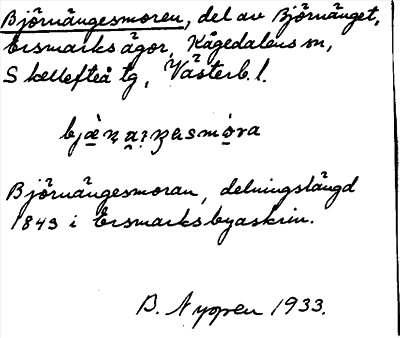 Björnängesmoren, del av Björnänget,
Ersmarks ägor, Kågedalens sn,
Skellefteå tg, Västerb. l.
Björnängesmoran, delningslängd
1843 i Ersmarks byaskrin.
B. Nygren 1933.